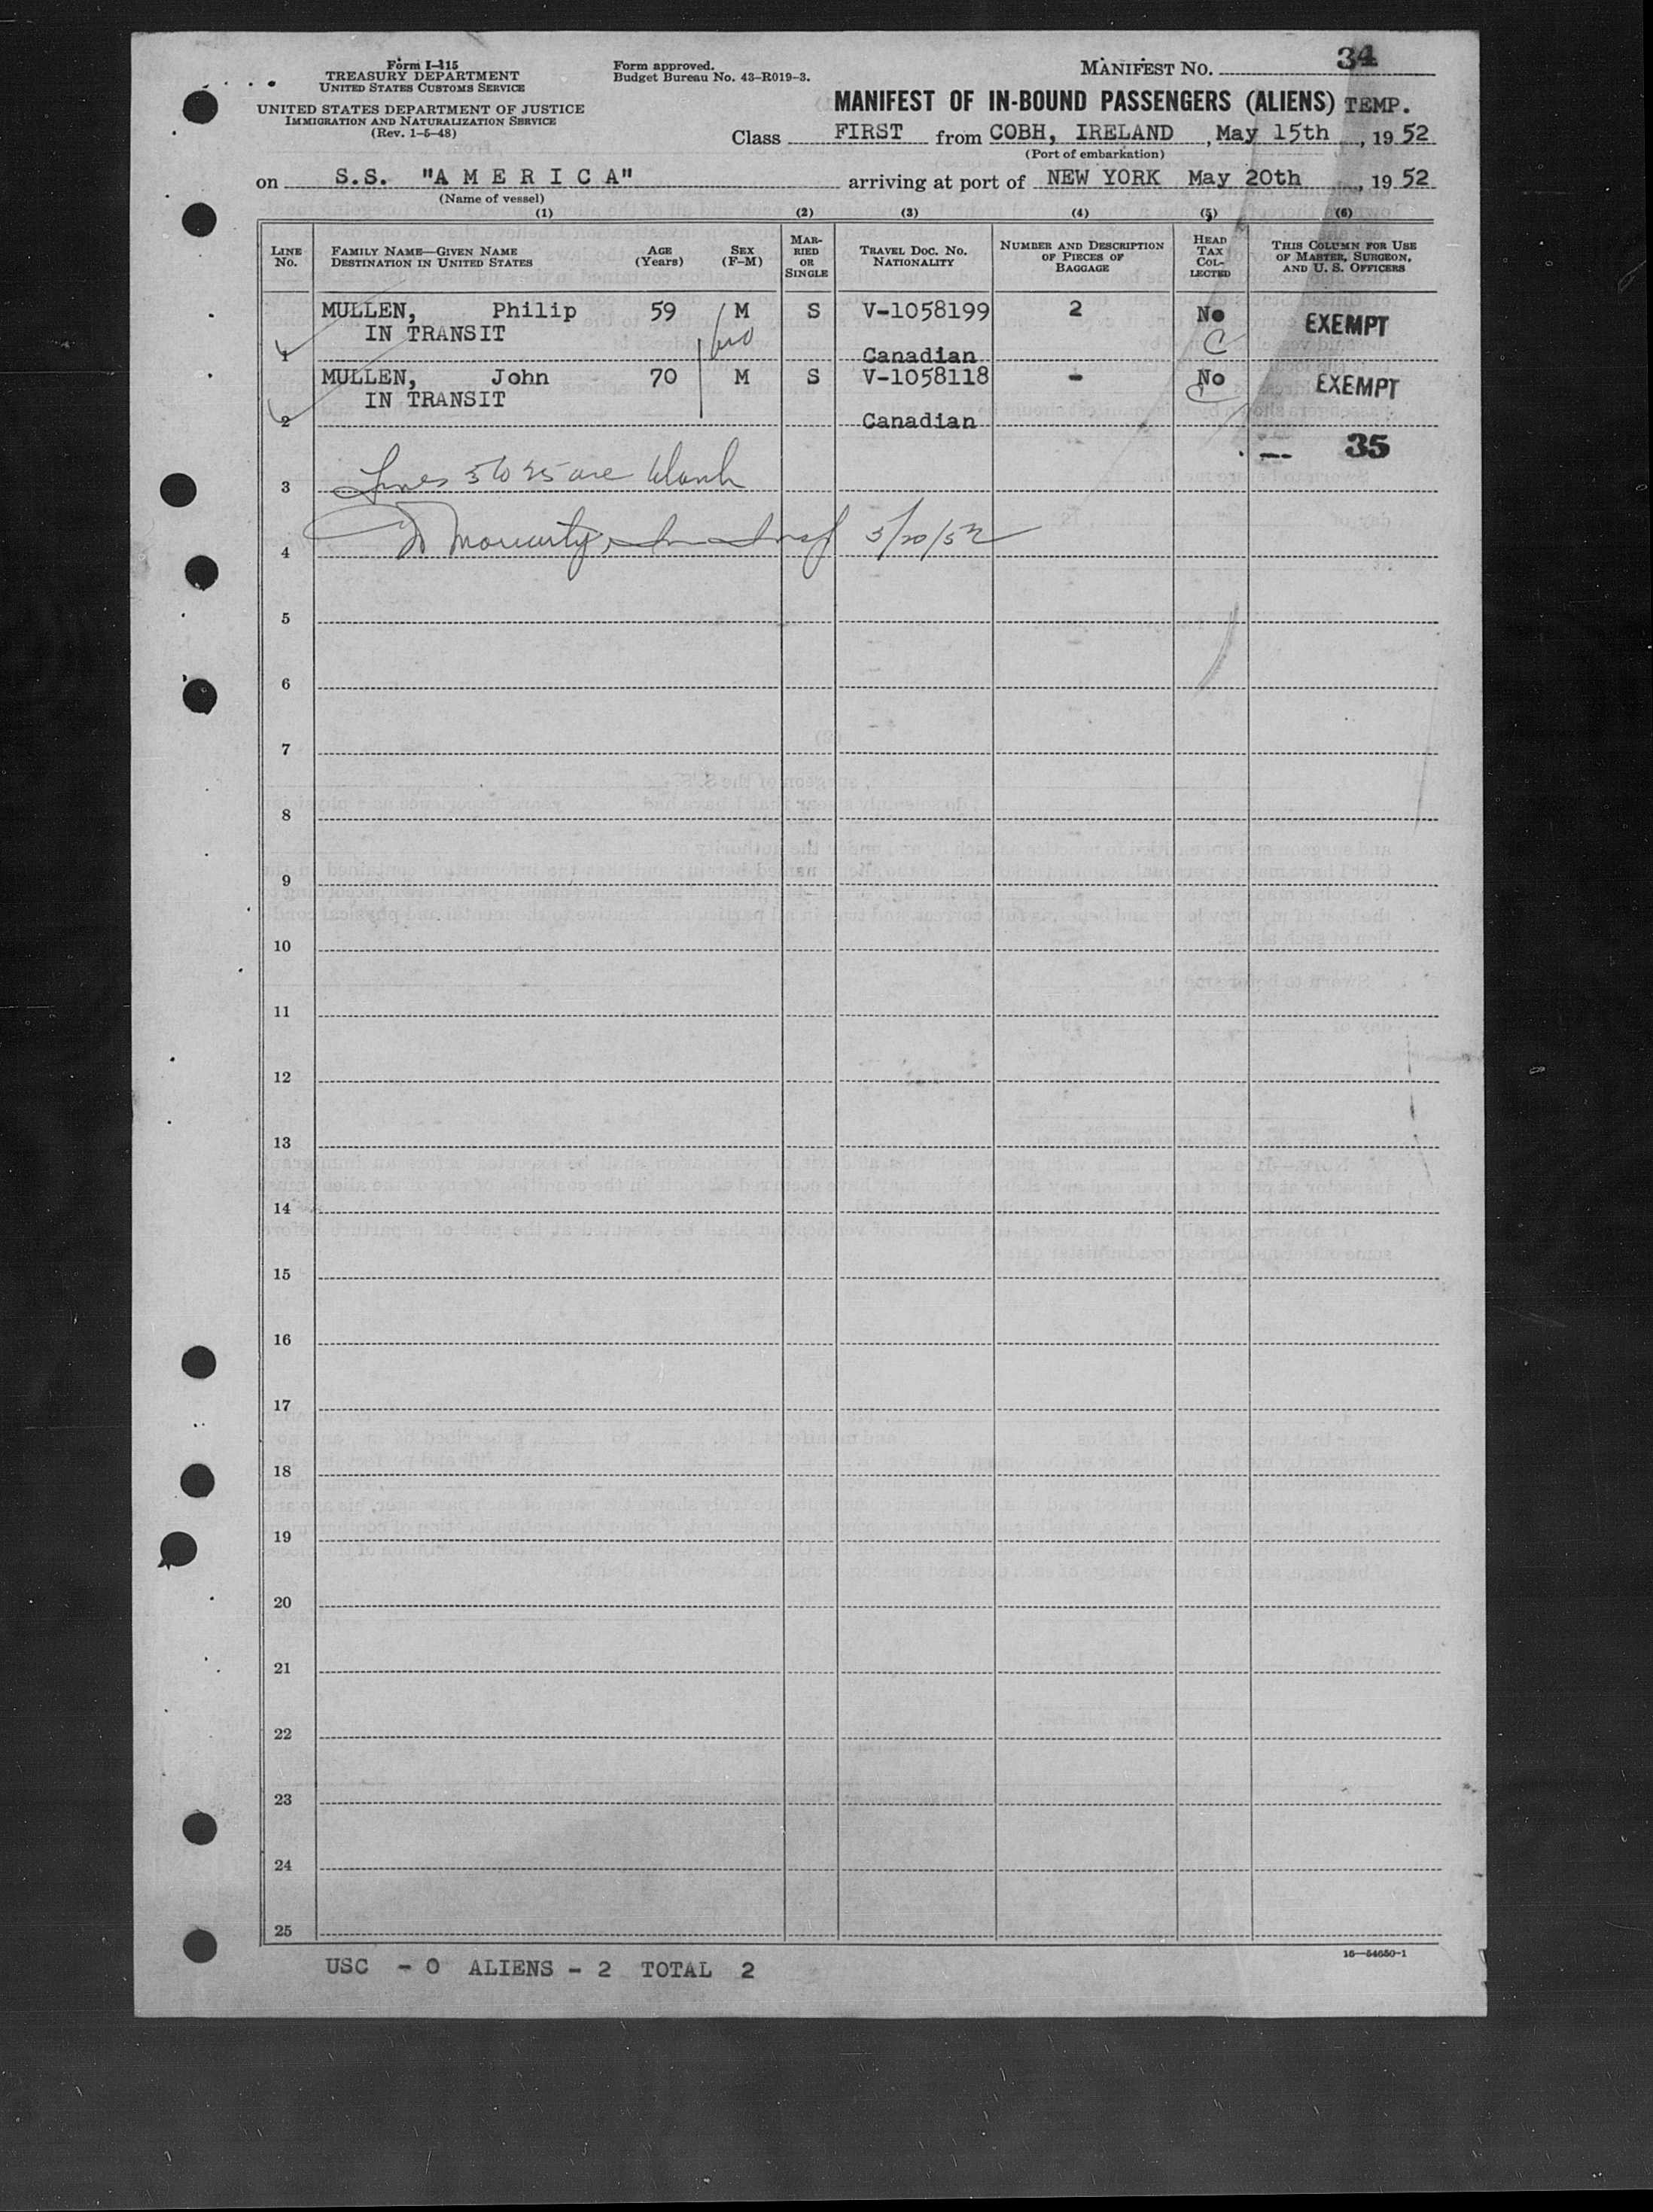 Form I-415
TREASURY DEPARTMENT
UNITED STATES CUSTOMS SERVICE
UNITED STATES DEPARTMENT OF JUSTICE
IMMIGRATION AND NATURALIZATION SERVICE
(Rev. 1-5-48)
Form approved.
Budget Bureau No. 43-R019-3.
MANIFEST No. 34
MANIFEST OF IN-BOUND PASSENGERS (ALIENS) TEMP.
Class FIRST from COBH, IRELAND, May 15th, 1952
(Port of embarkation)
on S.S. "A M E R I C A" arriving at port of NEW YORK May 20th, 1952
(Name of vessel)
(1) (2) (3) (4) (5) (6)
LINE No.
FAMILY NAME—GIVEN NAME
DESTINATION IN UNITED STATES
AGE (Years)
SEX (F-M)
MARRIED OR SINGLE
TRAVEL DOC. NO.
NATIONALITY
NUMBER AND DESCRIPTION OF PIECES OF BAGGAGE
HEAD TAX COLLECTED
THIS COLUMN FOR USE OF MASTER, SURGEON, AND U. S. OFFICERS
MULLEN, Philip 59 M S V-1058199 2 No EXEMPT
IN TRANSIT
1 Canadian C
MULLEN, John 70 M S V-1058118 - No EXEMPT
IN TRANSIT C
2 Canadian
35
3 Lines 3 to 25 are blank
4 Moriarty 5/20/52
5
6
7
8
9
10
11
12
13
14
15
16
17
18
19
20
21
22
23
24
25
16—54650-1
USC - 0 ALIENS - 2 TOTAL 2